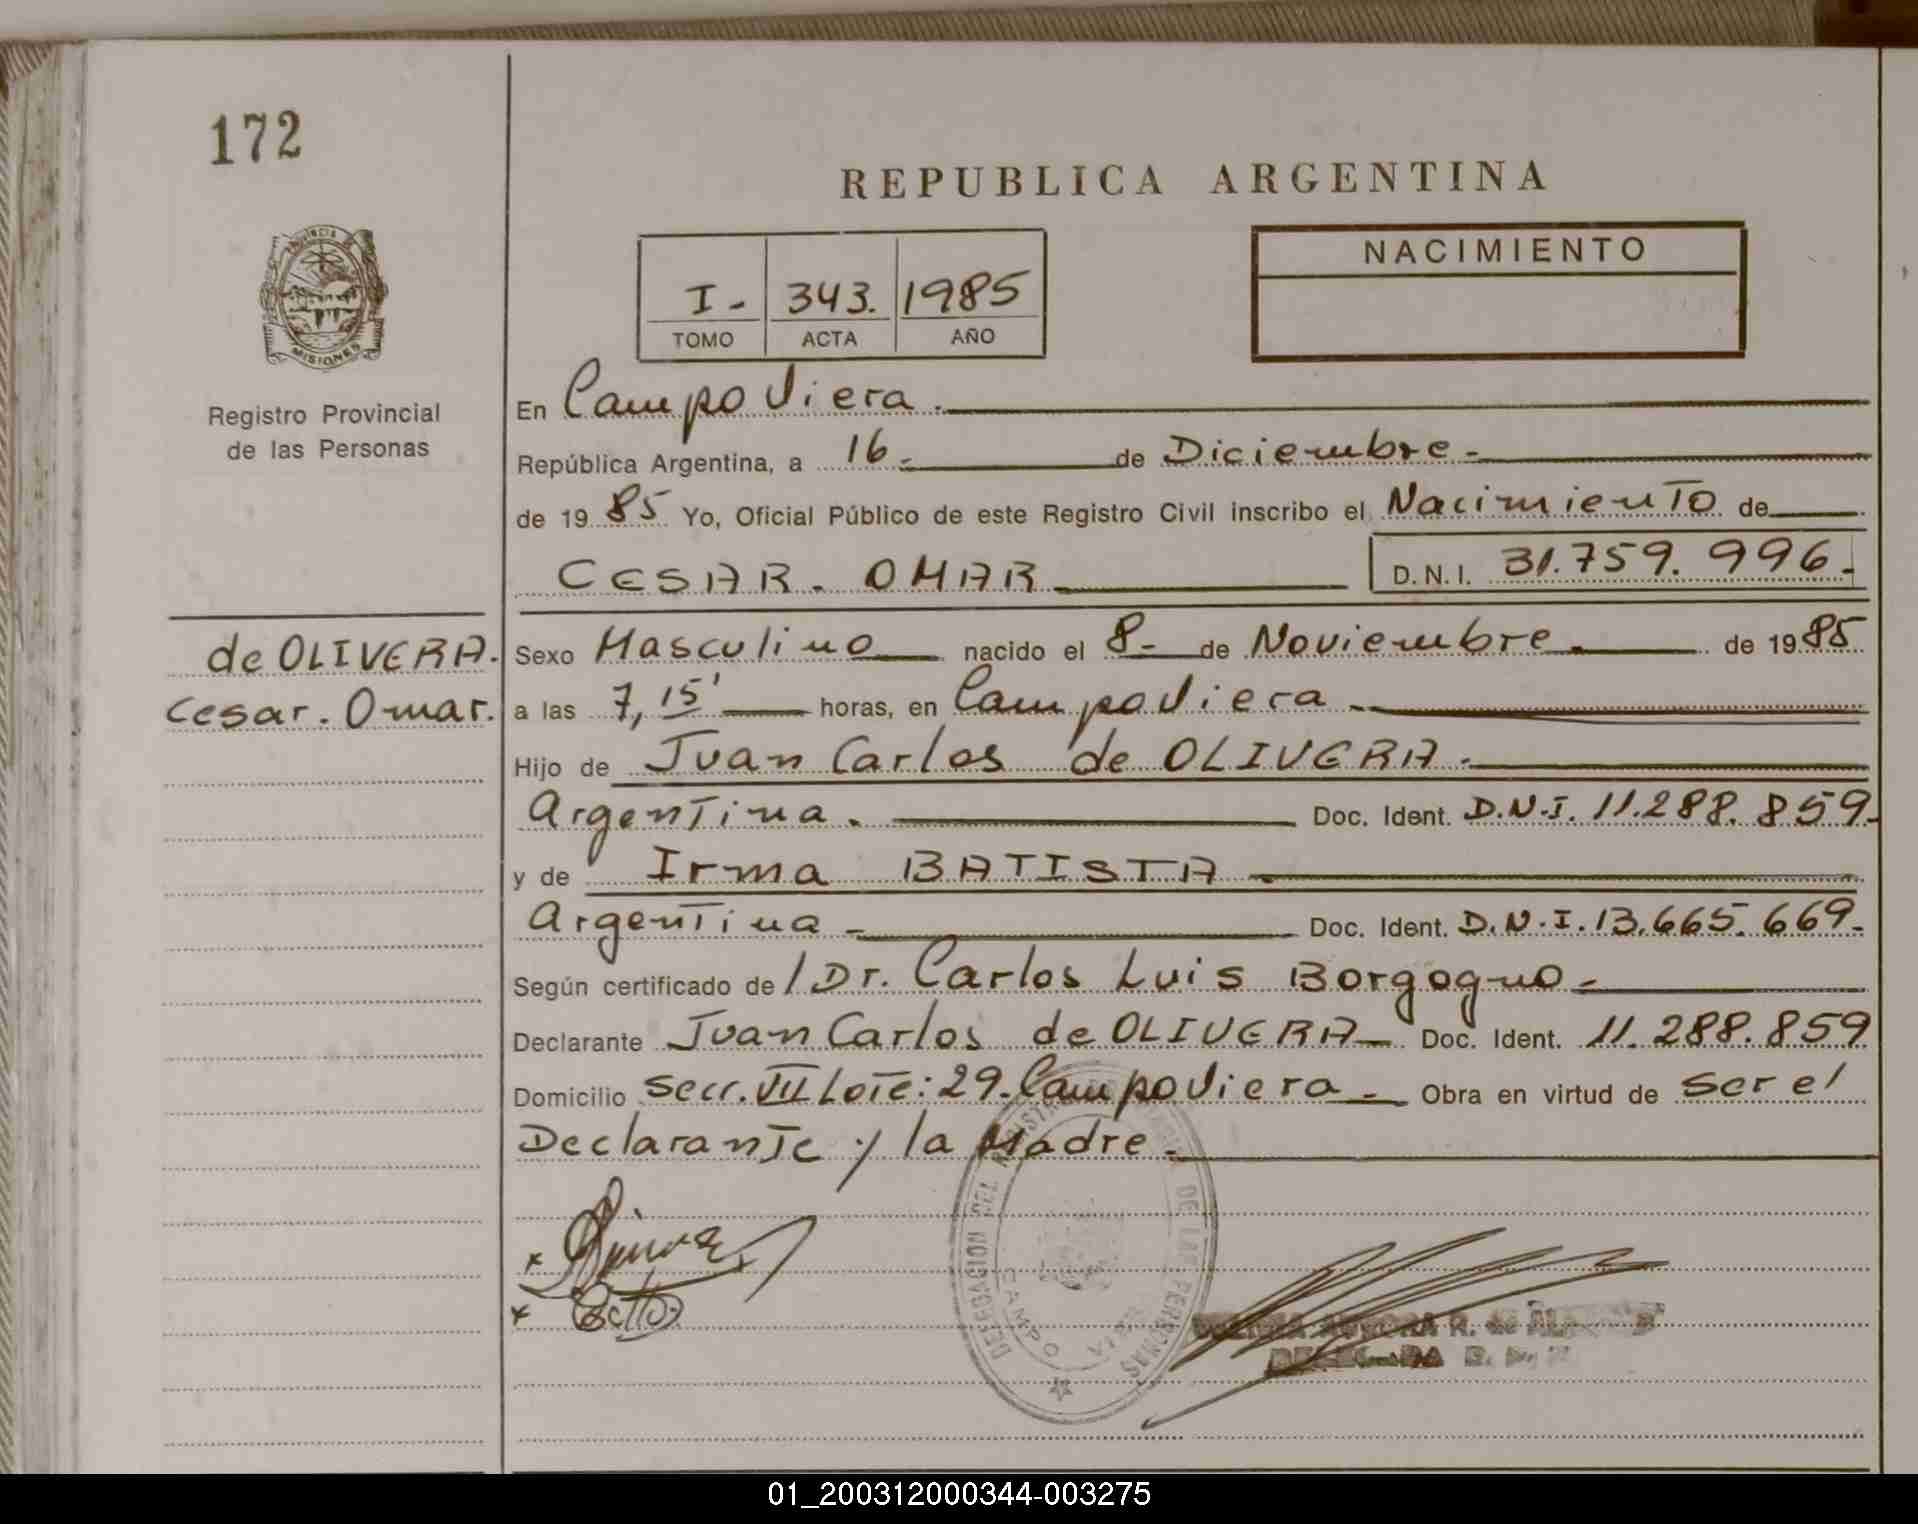 172
REPUBLICA ARGENTINA
PROVINCIA DE
MISIONES
Registro Provincial
de las Personas
I- 343. 1985
TOMO ACTA AÑO
NACIMIENTO
En Campo Viera.
República Argentina, a 16- de Diciembre-
de 1985 Yo, Oficial Público de este Registro Civil inscribo el Nacimiento de
CESAR. OMAR D.N.I. 31.759.996-
de OLIVERA.
Cesar. Omar.
Sexo Masculino nacido el 8- de Noviembre. de 1985
a las 7,15' horas, en Campo Viera-
Hijo de Juan Carlos de OLIVERA.
Argentina. Doc. Ident. D.N.I. 11.288.859-
y de Irma BATISTA-
Argentina- Doc. Ident. D.N.I. 13.665.669-
Según certificado de/ Dr. Carlos Luis Borgogno-
Declarante Juan Carlos de OLIVERA- Doc. Ident. 11.288.859
Domicilio Secc. VII Lote: 29- Campo Viera- Obra en virtud de ser el
Declarante y la Madre.
DELEGACION DEL REGISTRO DE LAS PERSONAS
CAMPO VIERA
AURORA R. de
01_200312000344-003275